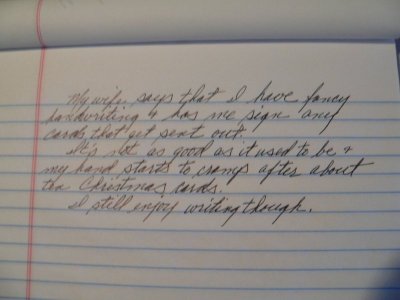 My wife says that I have fancy
handwriting & has me sign any
cards that get sent out.
It's not as good as it used to be &
my hand starts to cramp after about
ten Christmas cards.
I still enjoy writing though.